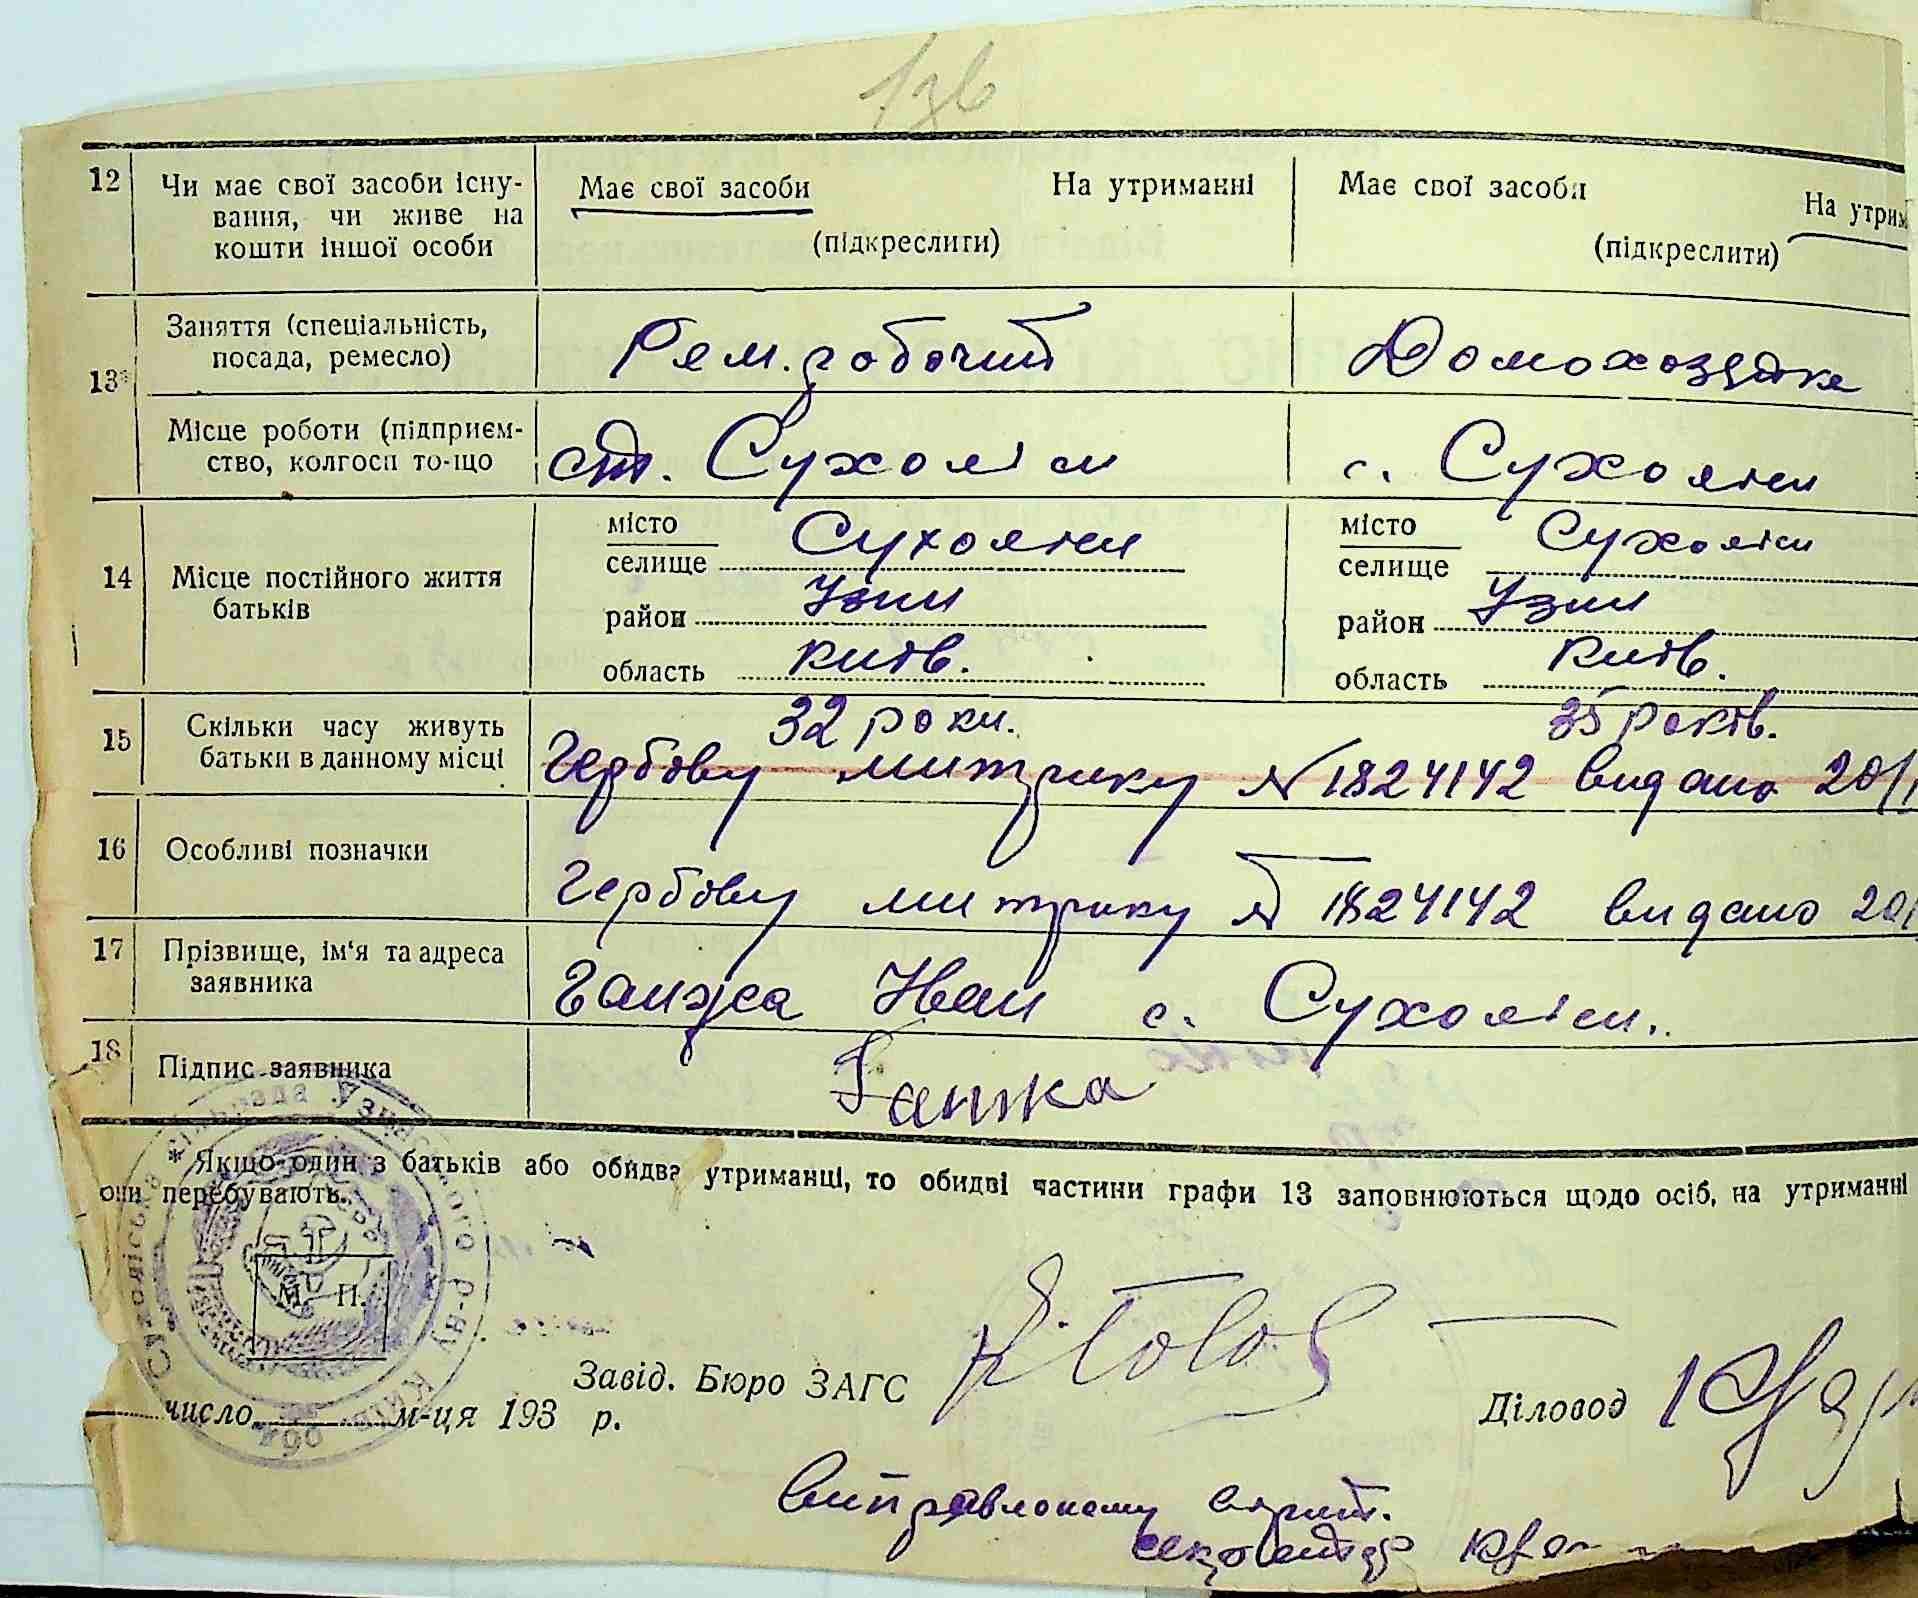 136
12 Чи має свої засоби існу- Має свої засоби На утриманні Має свої засоби На утрим
вання, чи живе на (підкреслити) (підкреслити)
кошти іншої особи
13* Заняття (спеціальність, Рем. робочий Домохозяйка
посада, ремесло)
Місце роботи (підприєм- ст. Сухоліси с. Сухоліси
ство, колгосп то-що
14 Місце постійного життя місто Сухоліси місто Сухоліси
батьків селище селище
район Узин район Узин
область київ. область київ.
15 Скільки часу живуть 32 роки. 35 років.
батьки в данному місці Гербову митрику № 1824142 видано 20/
16 Особливі позначки
Гербову митрику № 1824142 видано 20/
17 Прізвище, ім‘я та адреса Ганжа Иван с. Сухоліси.
заявника
18 Підпис заявника Ганжа
* Якщо один з батьків або обидва утриманці, то обидві частини графи 13 заповнюються щодо осіб, на утриманні
они перебувають.
Сухоліська сільрада Узинського р-ну Київ обл.
М. П.
Завід. Бюро ЗАГС
Діловод
число м-ця 193 р.
Виправленому вірит.
секретар